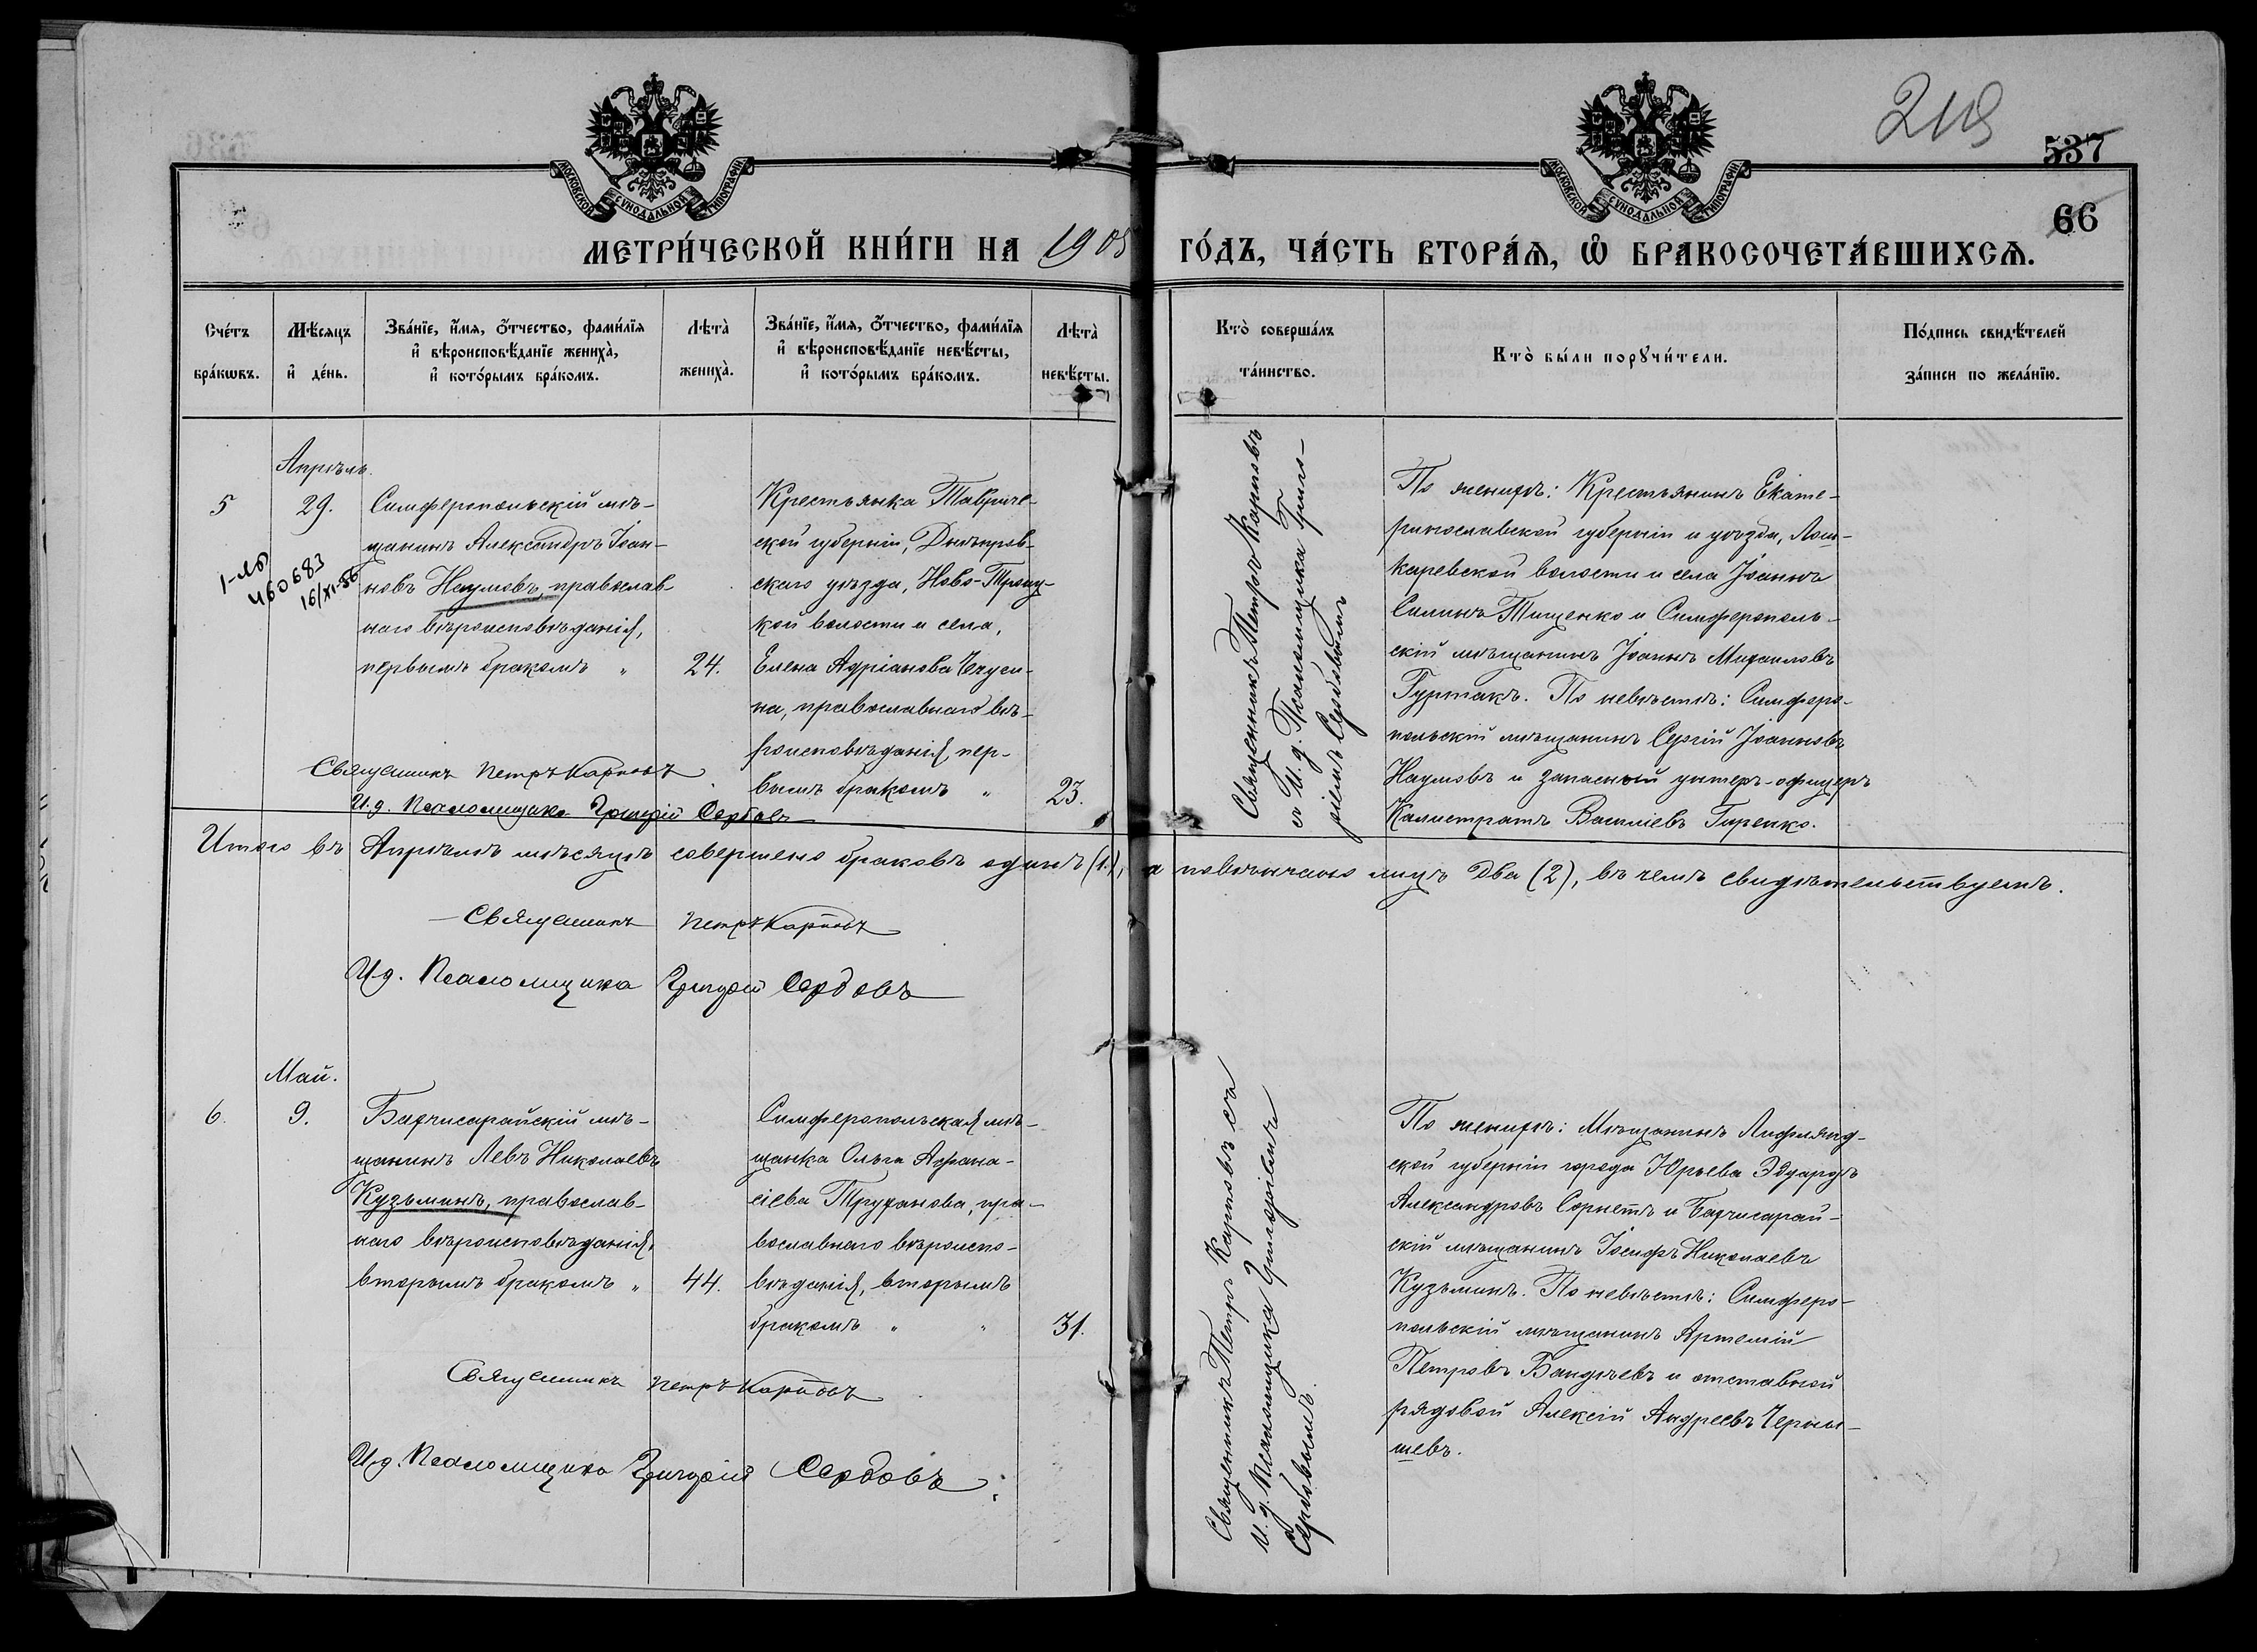 219
537
66
МОСКОВСКОЙ СѴНОДАЛЬНОЙ ТИПОГРАФІИ
МОСКОВСКОЙ СѴНОДАЛЬНОЙ ТИПОГРАФІИ
МЕТРИ́ЧЕСКОЙ КНИ́ГИ НА 1905 ГО́ДЪ, ЧА́СТЬ ВТОРА́Ѧ, Ѽ БРАКОСОЧЕТА́ВШИХСѦ.
Сче́тъ
бра́кѡвъ.
Мѣ́сяцъ
и҆ де́нь.
Зва́нїе, и҆́мя, о҆́тчество, фами́лїя
и҆ вѣроисповѣ́данїе жениха̀,
и҆ кото́рымъ бра́комъ.
Лѣта̀
жениха̀.
Зва́нїе, и҆́мя, о҆́тчество, фами́лїя
и҆ вѣроисповѣ́данїе невѣ́сты,
и҆ кото́рымъ бра́комъ.
Лѣта̀
невѣ́сты.
Кто̀ соверша́лъ
та́инство.
Кто̀ бы́ли порꙋчи́тели.
По́дпись свидѣ́телей
за́писи по жела́нїю.
Апрѣль.
5
29.
I-ЯБ
460683
16/XI-56
Симферопольскій мѣ-
щанинъ Александръ Іоан-
новъ Наумовъ, православ-
наго вѣроисповѣданія,
первымъ бракомъ "
24.
Крестьянка Тавриче-
ской губерніи, Днѣпров-
скаго уѣзда, Ново-Троиц-
кой волости и села,
Елена Адріанова Чечуги-
на, православнаго вѣ-
роисповѣданія, пер-
вымъ бракомъ "
23.
Священникъ Петръ Карповъ
съ И. д. Псаломщика Григо-
ріемъ Сербовымъ
По женихѣ: Крестьянинъ Екате-
ринославской губерніи и уѣзда, Лош-
каревской волости и села Іоаннъ
Силинъ Тищенко и Симферополь-
скій мѣщанинъ Іоаннъ Михаиловъ
Гуртакъ. По невѣстѣ: Симферо-
польскій мѣщанинъ Сергій Іоанновъ
Наумовъ и запасный унтеръ-офицеръ
Калистратъ Василіевъ Гиренко.
Священникъ Петръ Карповъ
И. д. Псаломщика Григорій Сербовъ
Итого въ Апрѣлѣ мѣсяцѣ совершено браковъ одинъ (1.), а повѣнчано лицъ два (2), въ чемъ свидѣтельствуемъ.
Священникъ Петръ Карповъ
И.д. Псаломщика Григорій Сербовъ
Май.
6.
9.
Бахчисарайскій мѣ-
щанинъ Левъ Николаевъ
Кузьминъ, православ-
наго вѣроисповѣданія,
вторымъ бракомъ "
44.
Симферопольская мѣ-
щанка Ольга Афана-
сіева Труханова, пра-
вославнаго вѣроиспо-
вѣданія, вторымъ
бракомъ " "
31.
Священникъ Петръ Карповъ съ
И. д. Псаломщика Григоріемъ
Сербовымъ.
По женихѣ: Мѣщанинъ Лифлянд-
ской губерніи города Юрьева Эдуардъ
Александровъ Сорнетъ и Бахчисарай-
скій мѣщанинъ Іосифъ Николаевъ
Кузьминъ. По невѣстѣ: Симферо-
польскій мѣщанинъ Артемій
Петровъ Бандуевъ и отставной
рядовой Алексій Андреевъ Черны-
шевъ.
Священникъ Петръ Карповъ
И.д. Псаломщика Григорій Сербовъ